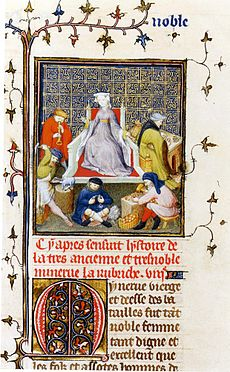 noble
Cy apres sensuit lystoire de
la tres ancienne et tresnoble
minerue la rubriche. viije
Mynerue vierge
et deesse des ba
tailles fut tāt
noble femme
tant digne et
excellent que
les folz et assotes hommes de